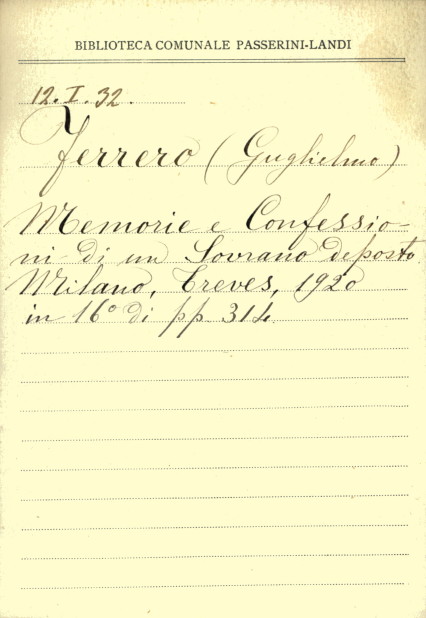 BIBLIOTECA COMUNALE PASSERINI-LANDI
12.I.32.
Ferrero (Guglielmo)
Memorie e Confessio-
ni di un Sovrano deposto
Milano, Treves, 1920
in 16° di pp 314